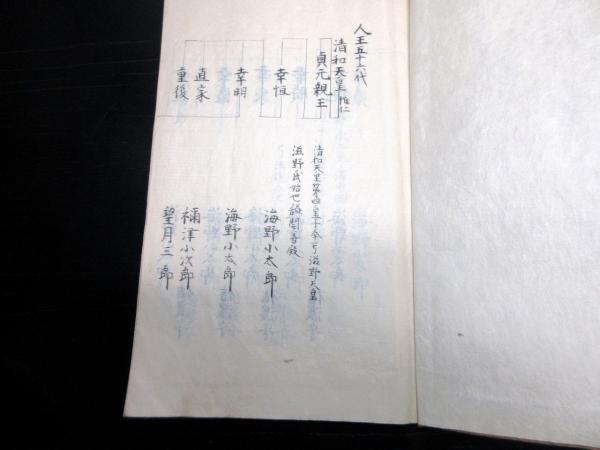 人王五十六代
清和天皇 惟仁
貞元親王
清和天皇第四皇子今号滋野天皇
滋野氏始也 開善殿
幸恒 海野小太郎
幸明 海野小太郎
直家 禰津小次郎
重俊 望月三郎